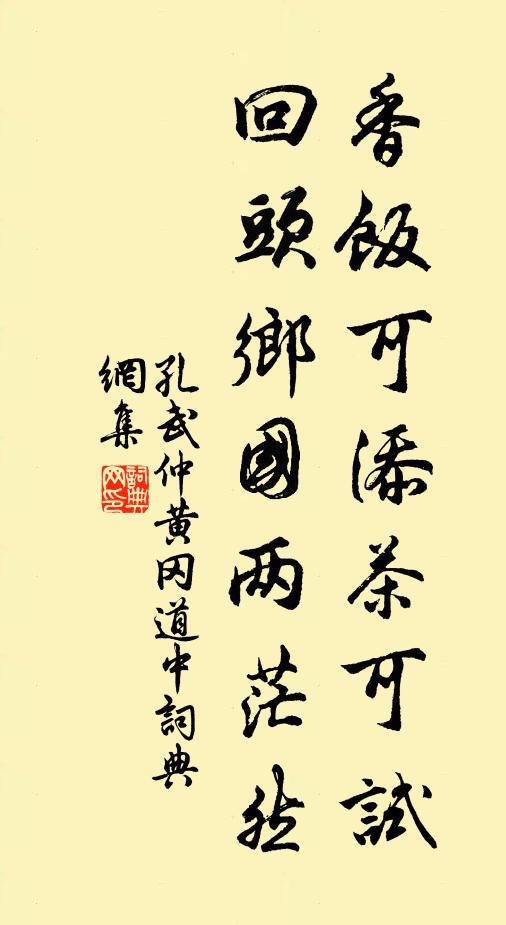 香飯可添茶可試
回頭鄉國两茫然
孔武仲黄冈道中詞典
網集
詞典
网印